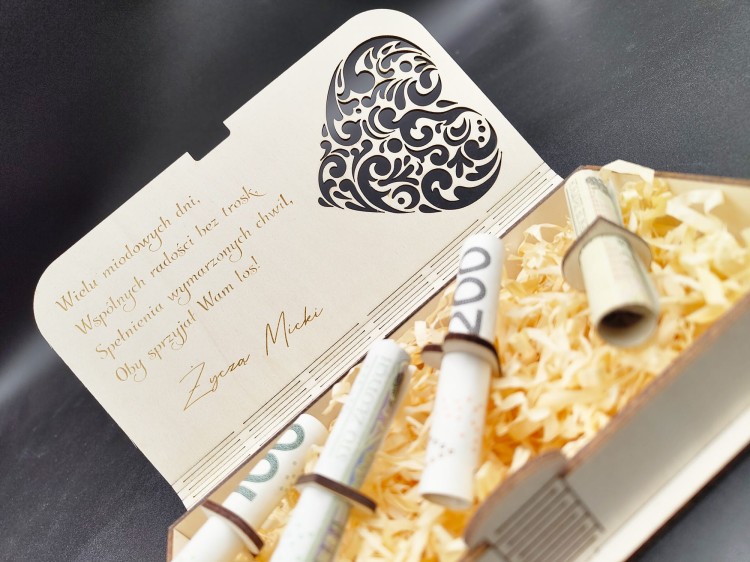 Wielu miodowych dni,
Wspólnych radości bez trosk,
Spełnienia wymarzonych chwil,
Oby sprzyjał Wam los!
Życzą Micki
200
100